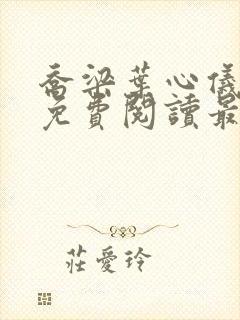 喬梁葉心儀
免費閱讀最
莊愛玲